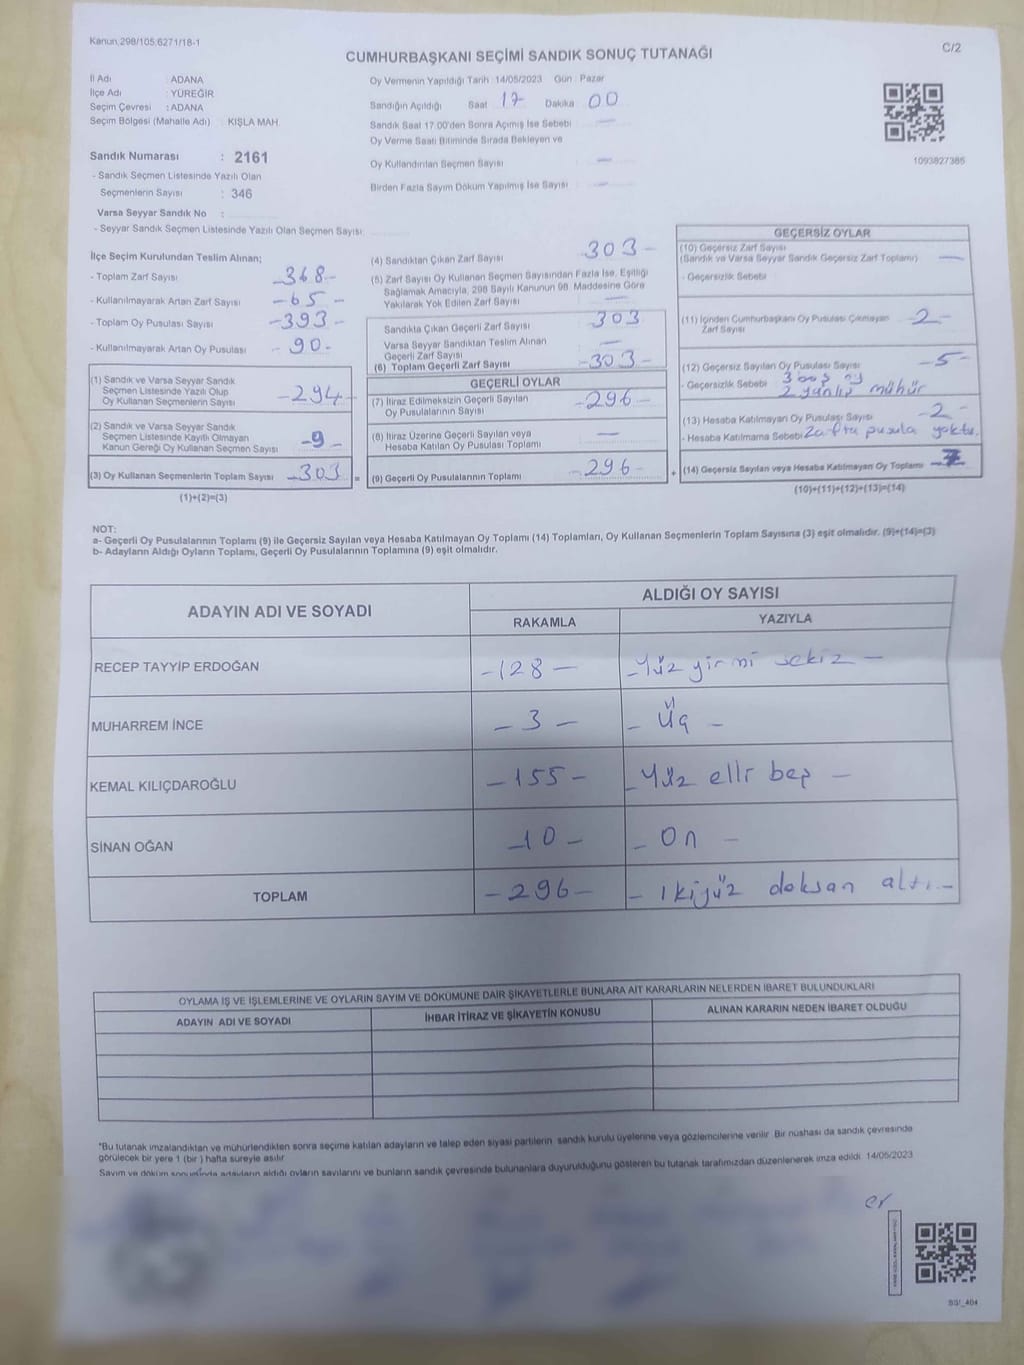 Kanun 298/105.6271/18-1
C/2
CUMHURBAŞKANI SEÇİMİ SANDIK SONUÇ TUTANAĞI
İl Adı : ADANA
İlçe Adı : YÜREĞİR
Seçim Çevresi : ADANA
Seçim Bölgesi (Mahalle Adı) : KIŞLA MAH.
Sandık Numarası : 2161
- Sandık Seçmen Listesinde Yazılı Olan
Seçmenlerin Sayısı : 346
Varsa Seyyar Sandık No :
- Seyyar Sandık Seçmen Listesinde Yazılı Olan Seçmen Sayısı:
Oy Vermenin Yapıldığı Tarih : 14/05/2023 Gün : Pazar
Sandığın Açıldığı Saat 17 Dakika 00
Sandık Saat 17.00'den Sonra Açımış İse Sebebi —
Oy Verme Saati Bitiminde Sırada Bekleyen ve
Oy Kullandırılan Seçmen Sayısı —
Birden Fazla Sayım Döküm Yapılmış İse Sayısı —
1093827385
İlçe Seçim Kurulundan Teslim Alınan;
- Toplam Zarf Sayısı -368-
- Kullanılmayarak Artan Zarf Sayısı -65-
- Toplam Oy Pusulası Sayısı -393-
- Kullanılmayarak Artan Oy Pusulası -90-
(1) Sandık ve Varsa Seyyar Sandık
Seçmen Listesinde Yazılı Olup
Oy Kullanan Seçmenlerin Sayısı -294-
(2) Sandık ve Varsa Seyyar Sandık
Seçmen Listesinde Kayıtlı Olmayan
Kanun Gereği Oy Kullanan Seçmen Sayısı -9-
(3) Oy Kullanan Seçmenlerin Toplam Sayısı -303-
(1)+(2)=(3)
(4) Sandıktan Çıkan Zarf Sayısı 303-
(5) Zarf Sayısı Oy Kullanan Seçmen Sayısından Fazla İse, Eşitliği
Sağlamak Amacıyla, 298 Sayılı Kanunun 98. Maddesine Göre
Yakılarak Yok Edilen Zarf Sayısı —
Sandıkta Çıkan Geçerli Zarf Sayısı 303
Varsa Seyyar Sandıktan Teslim Alınan
Geçerli Zarf Sayısı —
(6) Toplam Geçerli Zarf Sayısı -303-
GEÇERLİ OYLAR
(7) İtiraz Edilmeksizin Geçerli Sayılan
Oy Pusulalarının Sayısı -296-
(8) İtiraz Üzerine Geçerli Sayılan veya
Hesaba Katılan Oy Pusulası Toplamı —
= (9) Geçerli Oy Pusulalarının Toplamı -296-
GEÇERSİZ OYLAR
(10) Geçersiz Zarf Sayısı
(Sandık ve Varsa Seyyar Sandık Geçersiz Zarf Toplamı) —
- Geçersizlik Sebebi
(11) İçinden Cumhurbaşkanı Oy Pusulası Çıkmayan
Zarf Sayısı -2-
(12) Geçersiz Sayılan Oy Pusulası Sayısı -5-
- Geçersizlik Sebebi 3 boş oy
2 yanlış mühür
(13) Hesaba Katılmayan Oy Pusulası Sayısı -2-
- Hesaba Katılmama Sebebi Zarfta pusula yoktu.
+ (14) Geçersiz Sayılan veya Hesaba Katılmayan Oy Toplamı -7-
(10)+(11)+(12)+(13)=(14)
NOT:
a- Geçerli Oy Pusulalarının Toplamı (9) ile Geçersiz Sayılan veya Hesaba Katılmayan Oy Toplamı (14) Toplamları, Oy Kullanan Seçmenlerin Toplam Sayısına (3) eşit olmalıdır. (9)+(14)=(3)
b- Adayların Aldığı Oyların Toplamı, Geçerli Oy Pusulalarının Toplamına (9) eşit olmalıdır.
ADAYIN ADI VE SOYADI
ALDIĞI OY SAYISI
RAKAMLA YAZIYLA
RECEP TAYYİP ERDOĞAN -128- -Yüz yirmi sekiz-
MUHARREM İNCE -3- -Üç-
KEMAL KILIÇDAROĞLU -155- -Yüz elli beş-
SİNAN OĞAN -10- -On-
TOPLAM -296- -ikiyüz doksan altı-
OYLAMA İŞ VE İŞLEMLERİNE VE OYLARIN SAYIM VE DÖKÜMÜNE DAİR ŞİKAYETLERLE BUNLARA AİT KARARLARIN NELERDEN İBARET BULUNDUKLARI
ADAYIN ADI VE SOYADI İHBAR İTİRAZ VE ŞİKAYETİN KONUSU ALINAN KARARIN NEDEN İBARET OLDUĞU
*Bu tutanak imzalandıktan ve mühürlendikten sonra seçime katılan adayların ve talep eden siyasi partilerin sandık kurulu üyelerine veya gözlemcilerine verilir. Bir nüshası da sandık çevresinde
görülecek bir yere 1 (bir) hafta süreyle asılır.
Sayım ve döküm sonucunda adayların aldığı oyların sayılarını ve bunların sandık çevresinde bulunanlara duyurulduğunu gösteren bu tutanak tarafımızdan düzenlenerek imza edildi. 14/05/2023